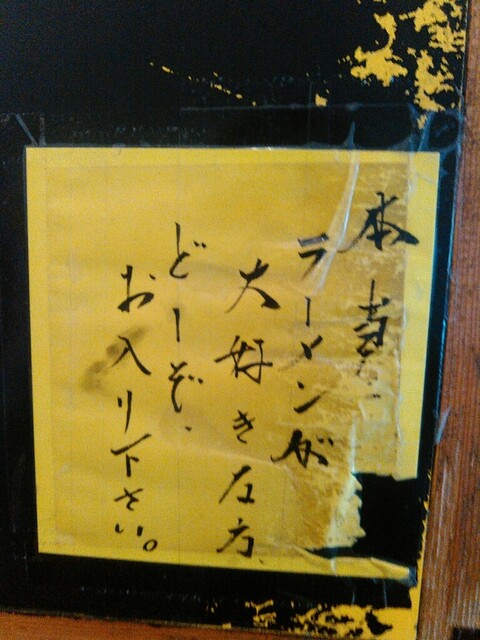 本当に
ラーメンが
大好き な方、
どーぞ、
お入り下さい。